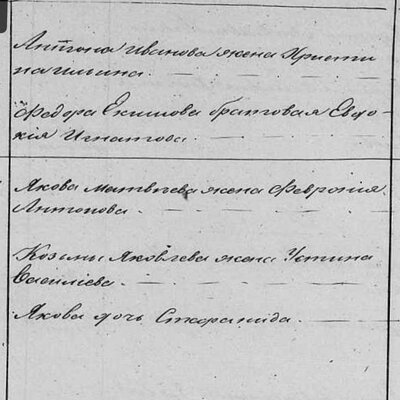 Антона Иванова жена Христи
на Ильина
Федора Екимова братовая Евдо-
кія Игнатова
Якова Матвѣева жена Феѵронія
Антонова.
Козьмы Яковлева жена Устина
Василіева.
Якова дочь Стефанида.